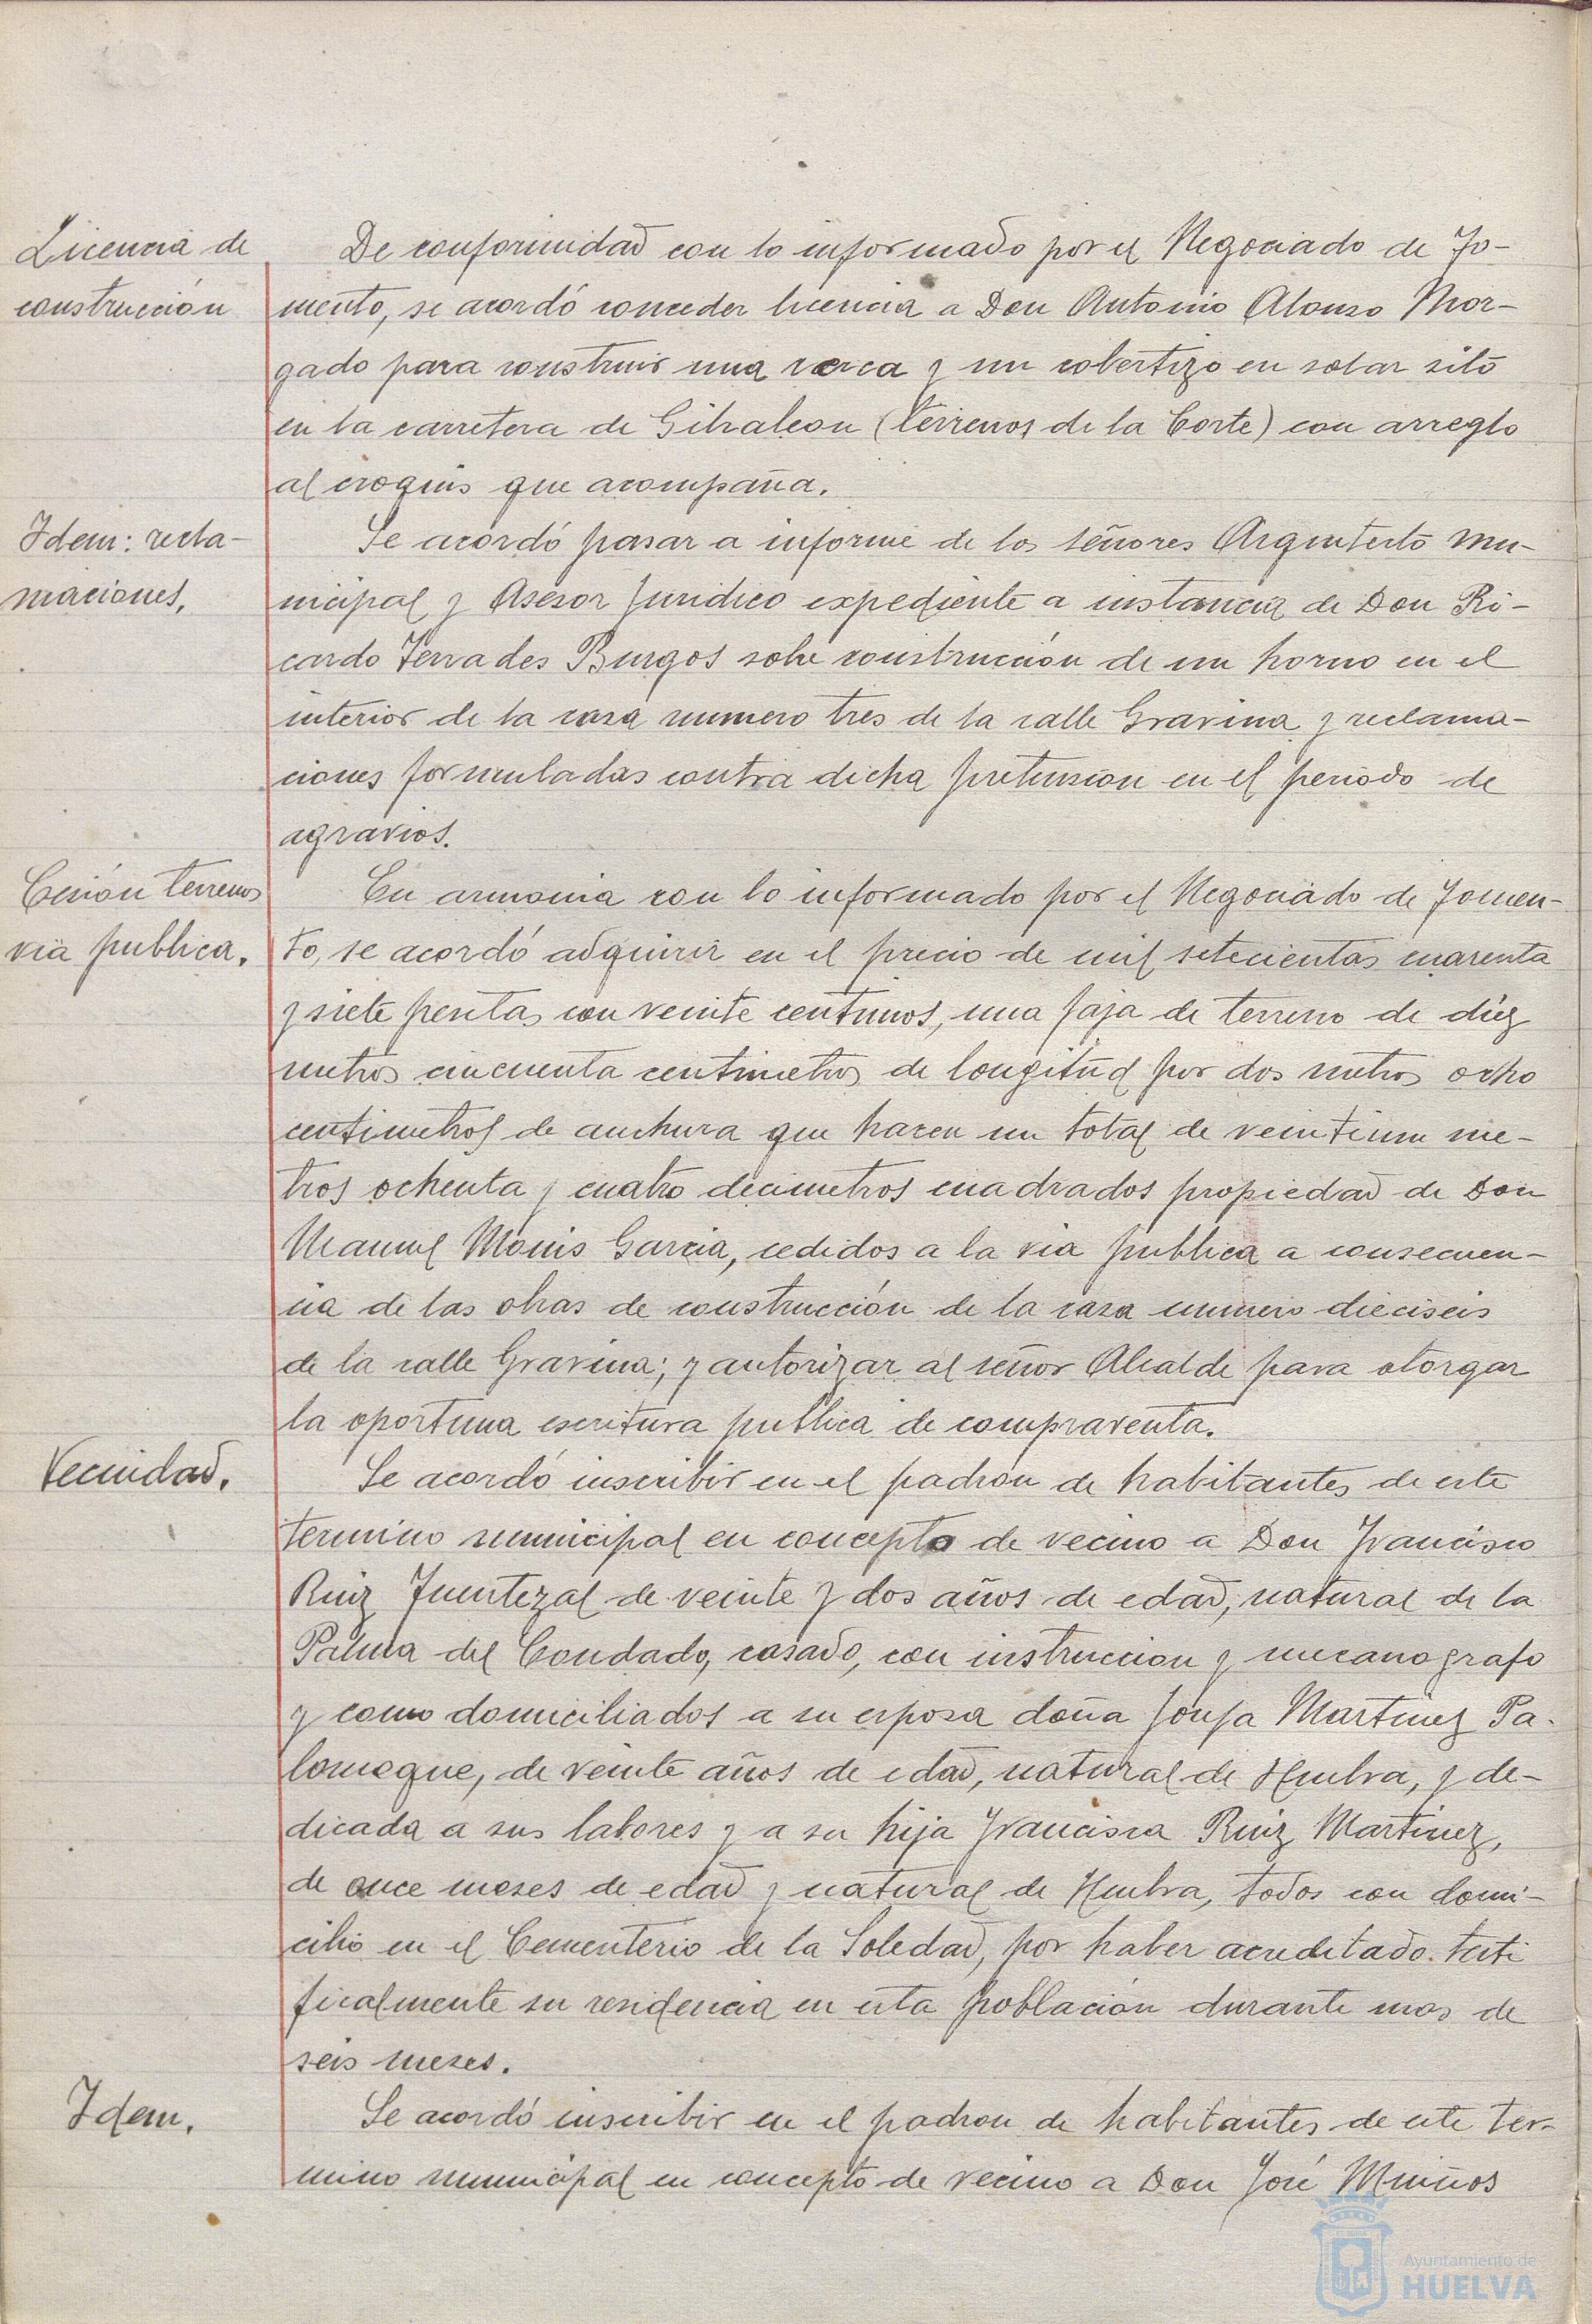 Licencia de
construcción
De conformidad con lo informado por el Negociado de Fo-
mento, se acordó conceder licencia a Don Antonio Alonso Mor-
gado para construir una cerca y un cobertizo en solar sito
en la carretera de Gibraleon (terrenos de la Corte) con arreglo
al croquis que acompaña.
Idem: recla-
maciones,
Se acordó pasar a informe de los señores Arquitecto mu-
nicipal y Asesor Juridico expediente a instancia de Don Ri-
cardo Terrades Burgos sobre construcción de un horno en el
interior de la casa numero tres de la calle Gravina y reclama-
ciones formuladas contra dicha pretension en el periodo de
agravios.
Cesión terrenos
via publica.
En armonia con lo informado por el Negociado de Fomen-
to, se acordó adquirir en el precio de mil setecientas cuarenta
y siete pesetas con veinte centimos, una faja de terreno de diéz
metros cincuenta centimetros de longitud por dos metros ocho
centimetros de anchura que hacen un total de veintiun me-
tros ochenta y cuatro decimetros cuadrados propiedad de Don
Manuel Monis Garcia, cedidos a la via publica a consecuen-
cia de las obras de construcción de la casa numero dieciseis
de la calle Gravina; y autorizar al señor Alcalde para otorgar
la oportuna escritura publica de compraventa.
Vecindad.
Se acordó inscribir en el padron de habitantes de este
termino municipal en concepto de vecino a Don Francisco
Ruiz Fuentezal de veinte y dos años de edad, natural de la
Palma del Condado, casado, con instruccion y mecanografo
y como domiciliados a su esposa doña Josefa Martinez Pa-
lomeque, de veinte años de edad, natural de Huelva, y de-
dicada a sus labores y a su hija Francisca Ruiz Martinez,
de once meses de edad y natural de Huelva, todos con domi-
cilio en el Cementerio de la Soledad, por haber acreditado testi
ficalmente su residencia en esta población durante mas de
seis meses.
Idem.
Se acordó inscribir en el padron de habitantes de este ter-
mino municipal en concepto de vecino a Don José Muiños
Ayuntamiento de
HUELVA